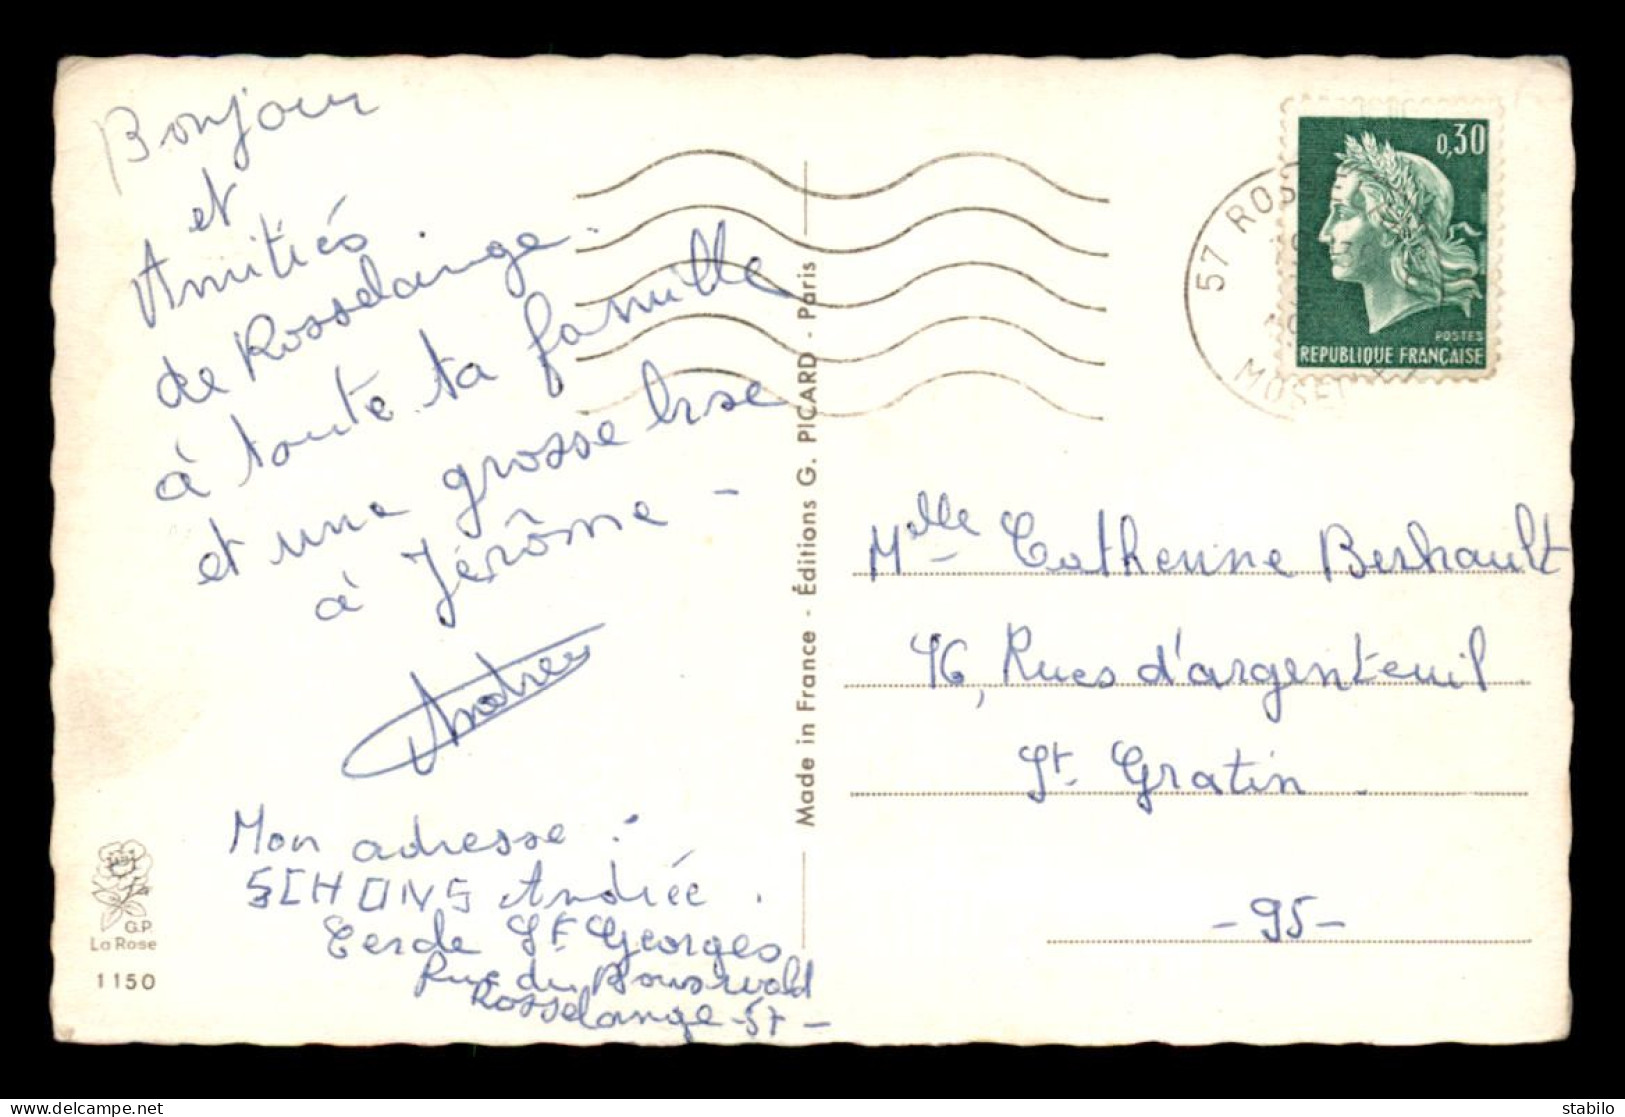 Bonjour
et
Amitiés
de Rosselange.
à toute ta famille
et une grosse bise
à Jérôme -
Andrée
Mon adresse :
SCHONS Andrée.
Cercle St Georges
Rue du
Rosselange -57-
G.P.
La Rose
1150
Made in France - Éditions G. PICARD - Paris
57 ROS
MOSELLE
0,30
POSTES
REPUBLIQUE FRANÇAISE
Melle Catherine Berhault
46, Rues d'argenteuil
St Gratin.
-95-
delcampe.net